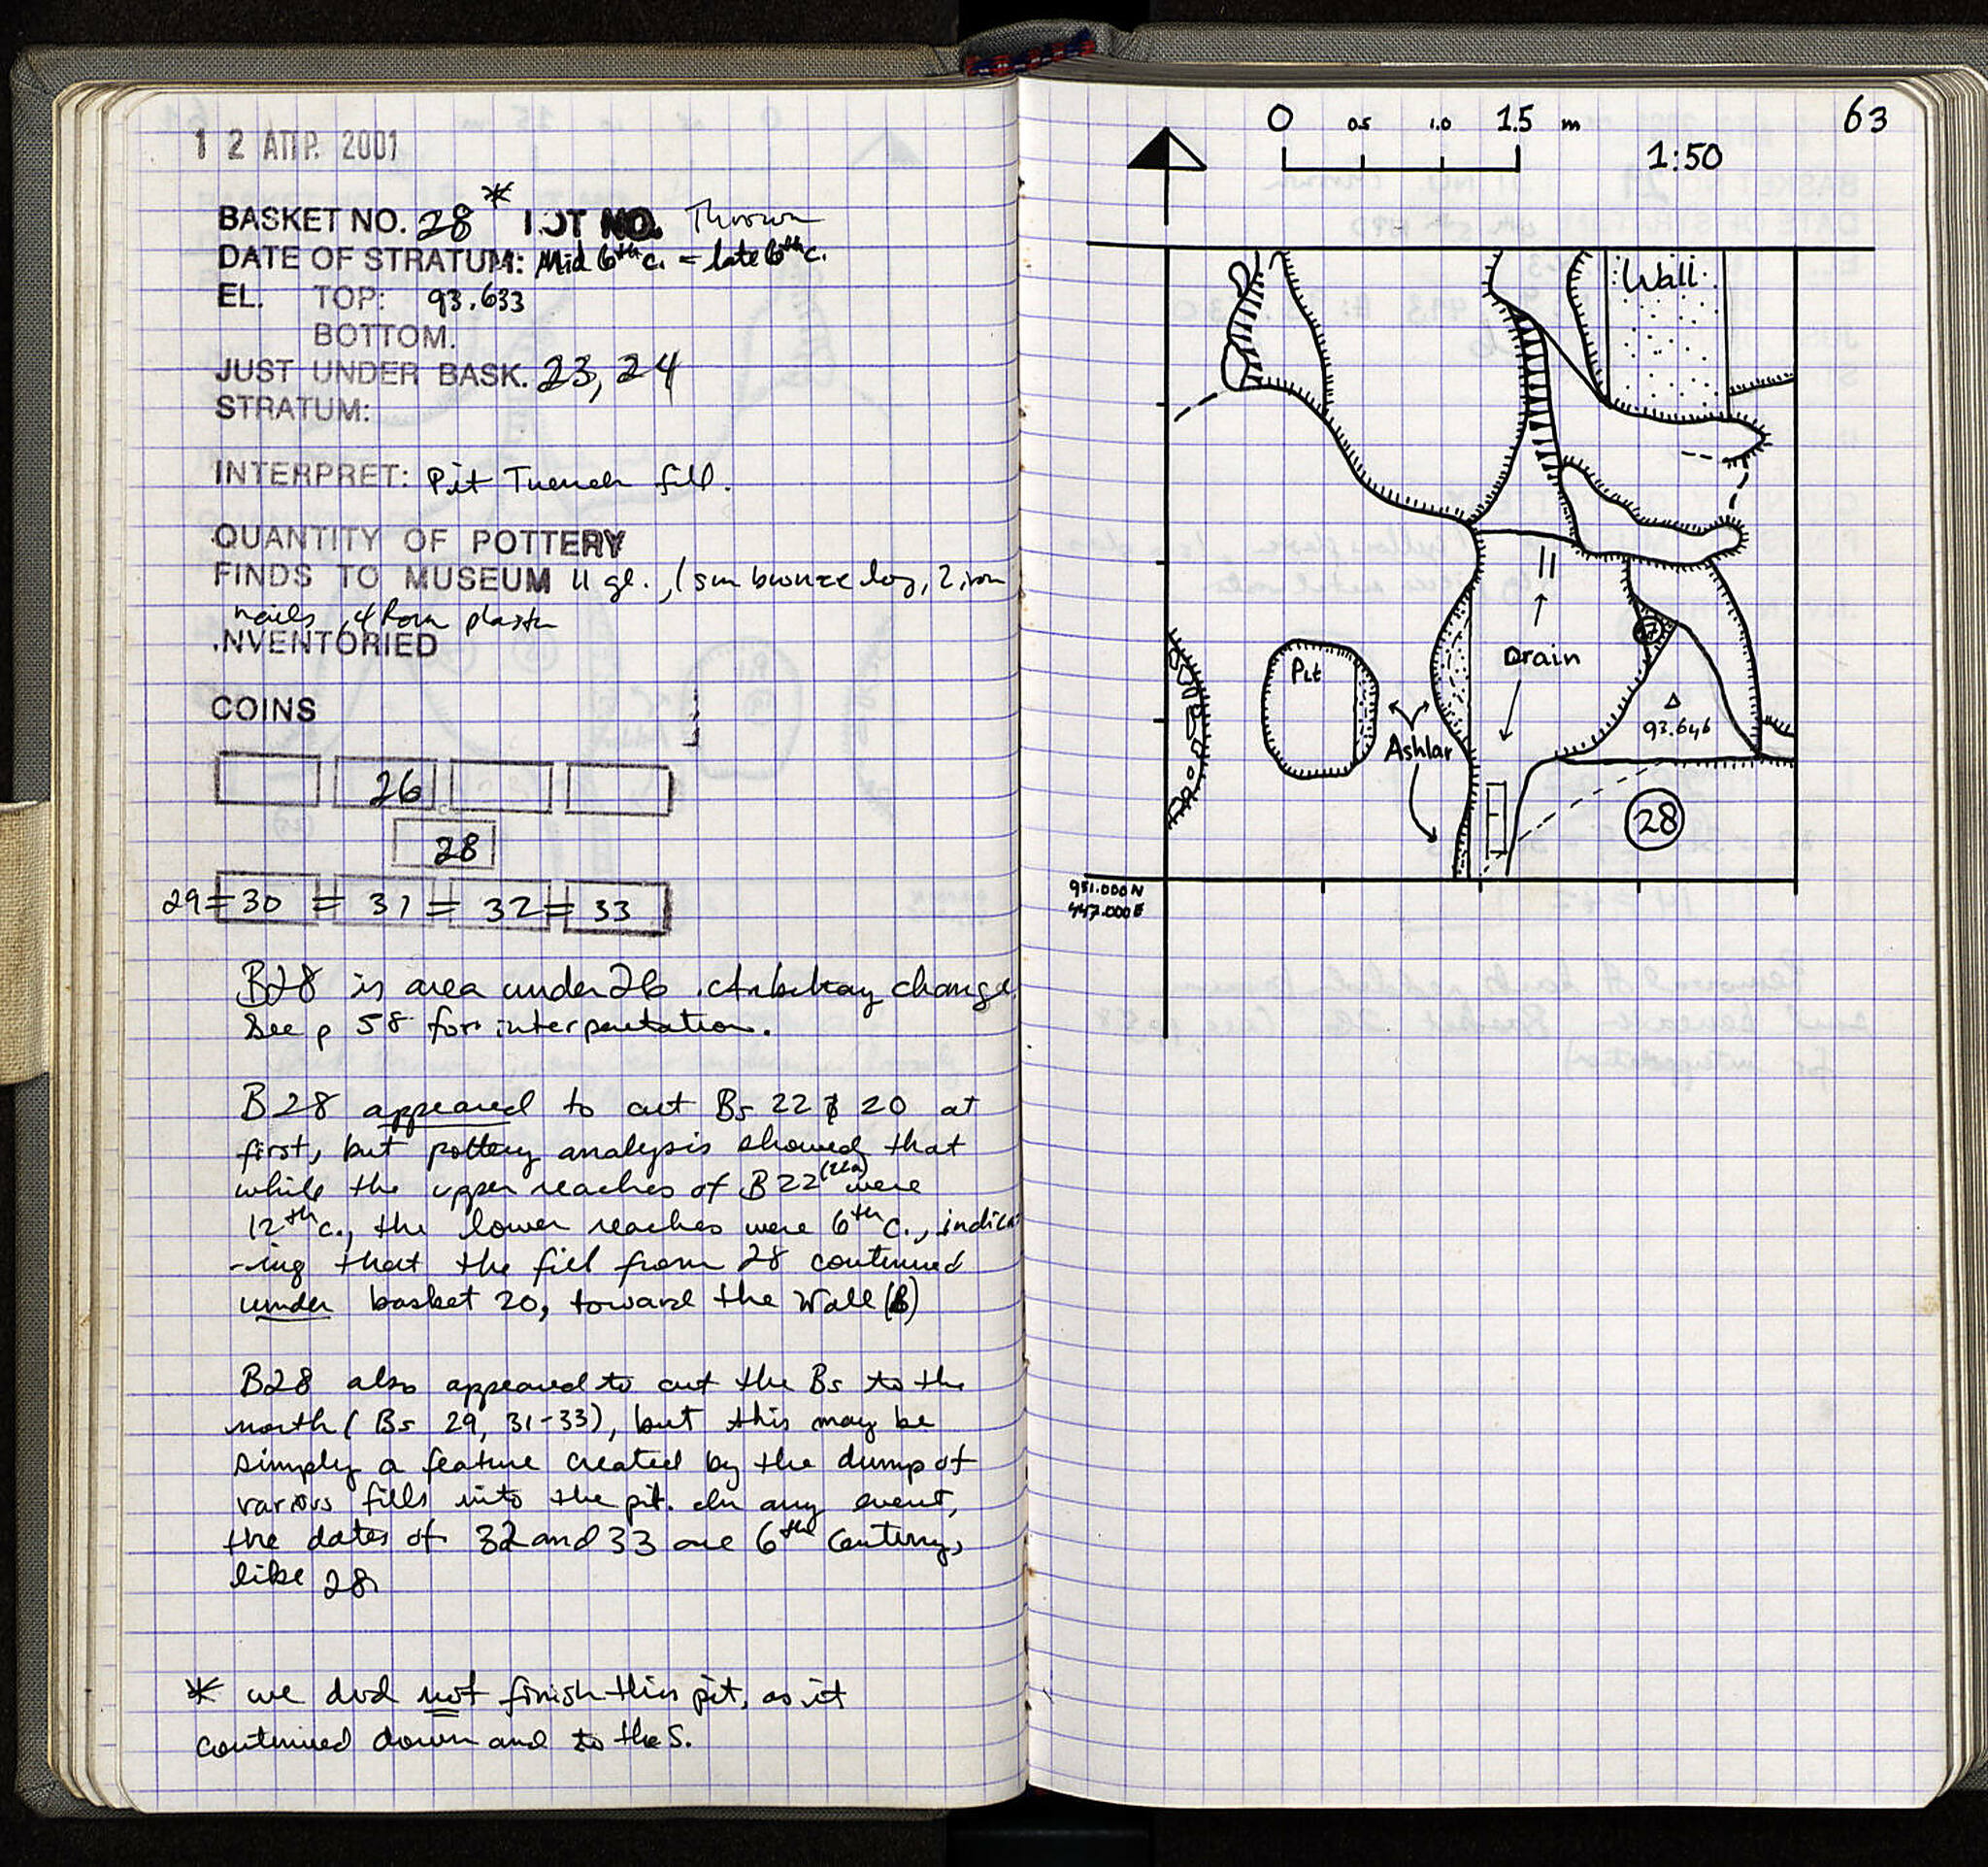 1 2 ΑΠΡ. 2001
BASKET NO. 28 * LOT NO. Thrown
DATE OF STRATUM: Mid 6th c. - late 6th c.
EL. TOP: 93.633
BOTTOM.
JUST UNDER BASK. 23, 24
STRATUM:
INTERPRET: Pit Trench fill.
QUANTITY OF POTTERY
FINDS TO MUSEUM 11 gl., 1 sm bronze log, 2 iron
nails, 4 plaster
.NVENTORIED
COINS
26
28
29 = 30 = 31 = 32 = 33
B28 is area under 26. Arbitray change.
See p 58 for interpretation.
B 28 appeared to cut Bs 22 & 20 at
first, but pottery analysis showed that
while the upper reaches of B22 (22a) were
12th c., the lower reaches were 6th c., indicat
-ing that the fill from 28 continued
under basket 20, toward the Wall (B)
B28 also appeared to cut the Bs to the
north (Bs 29, 31-33), but this may be
simply a feature created by the dump of
various fills into the pit. In any event,
the dates of 32 and 33 are 6th century,
like 28.
* we did not finish this pit, as it
continued down and to the S.
63
0 0.5 1.0 1.5 m
1:50
Wall
Drain
Pit
Ashlar
93.646
28
951.000 N
447.000 E